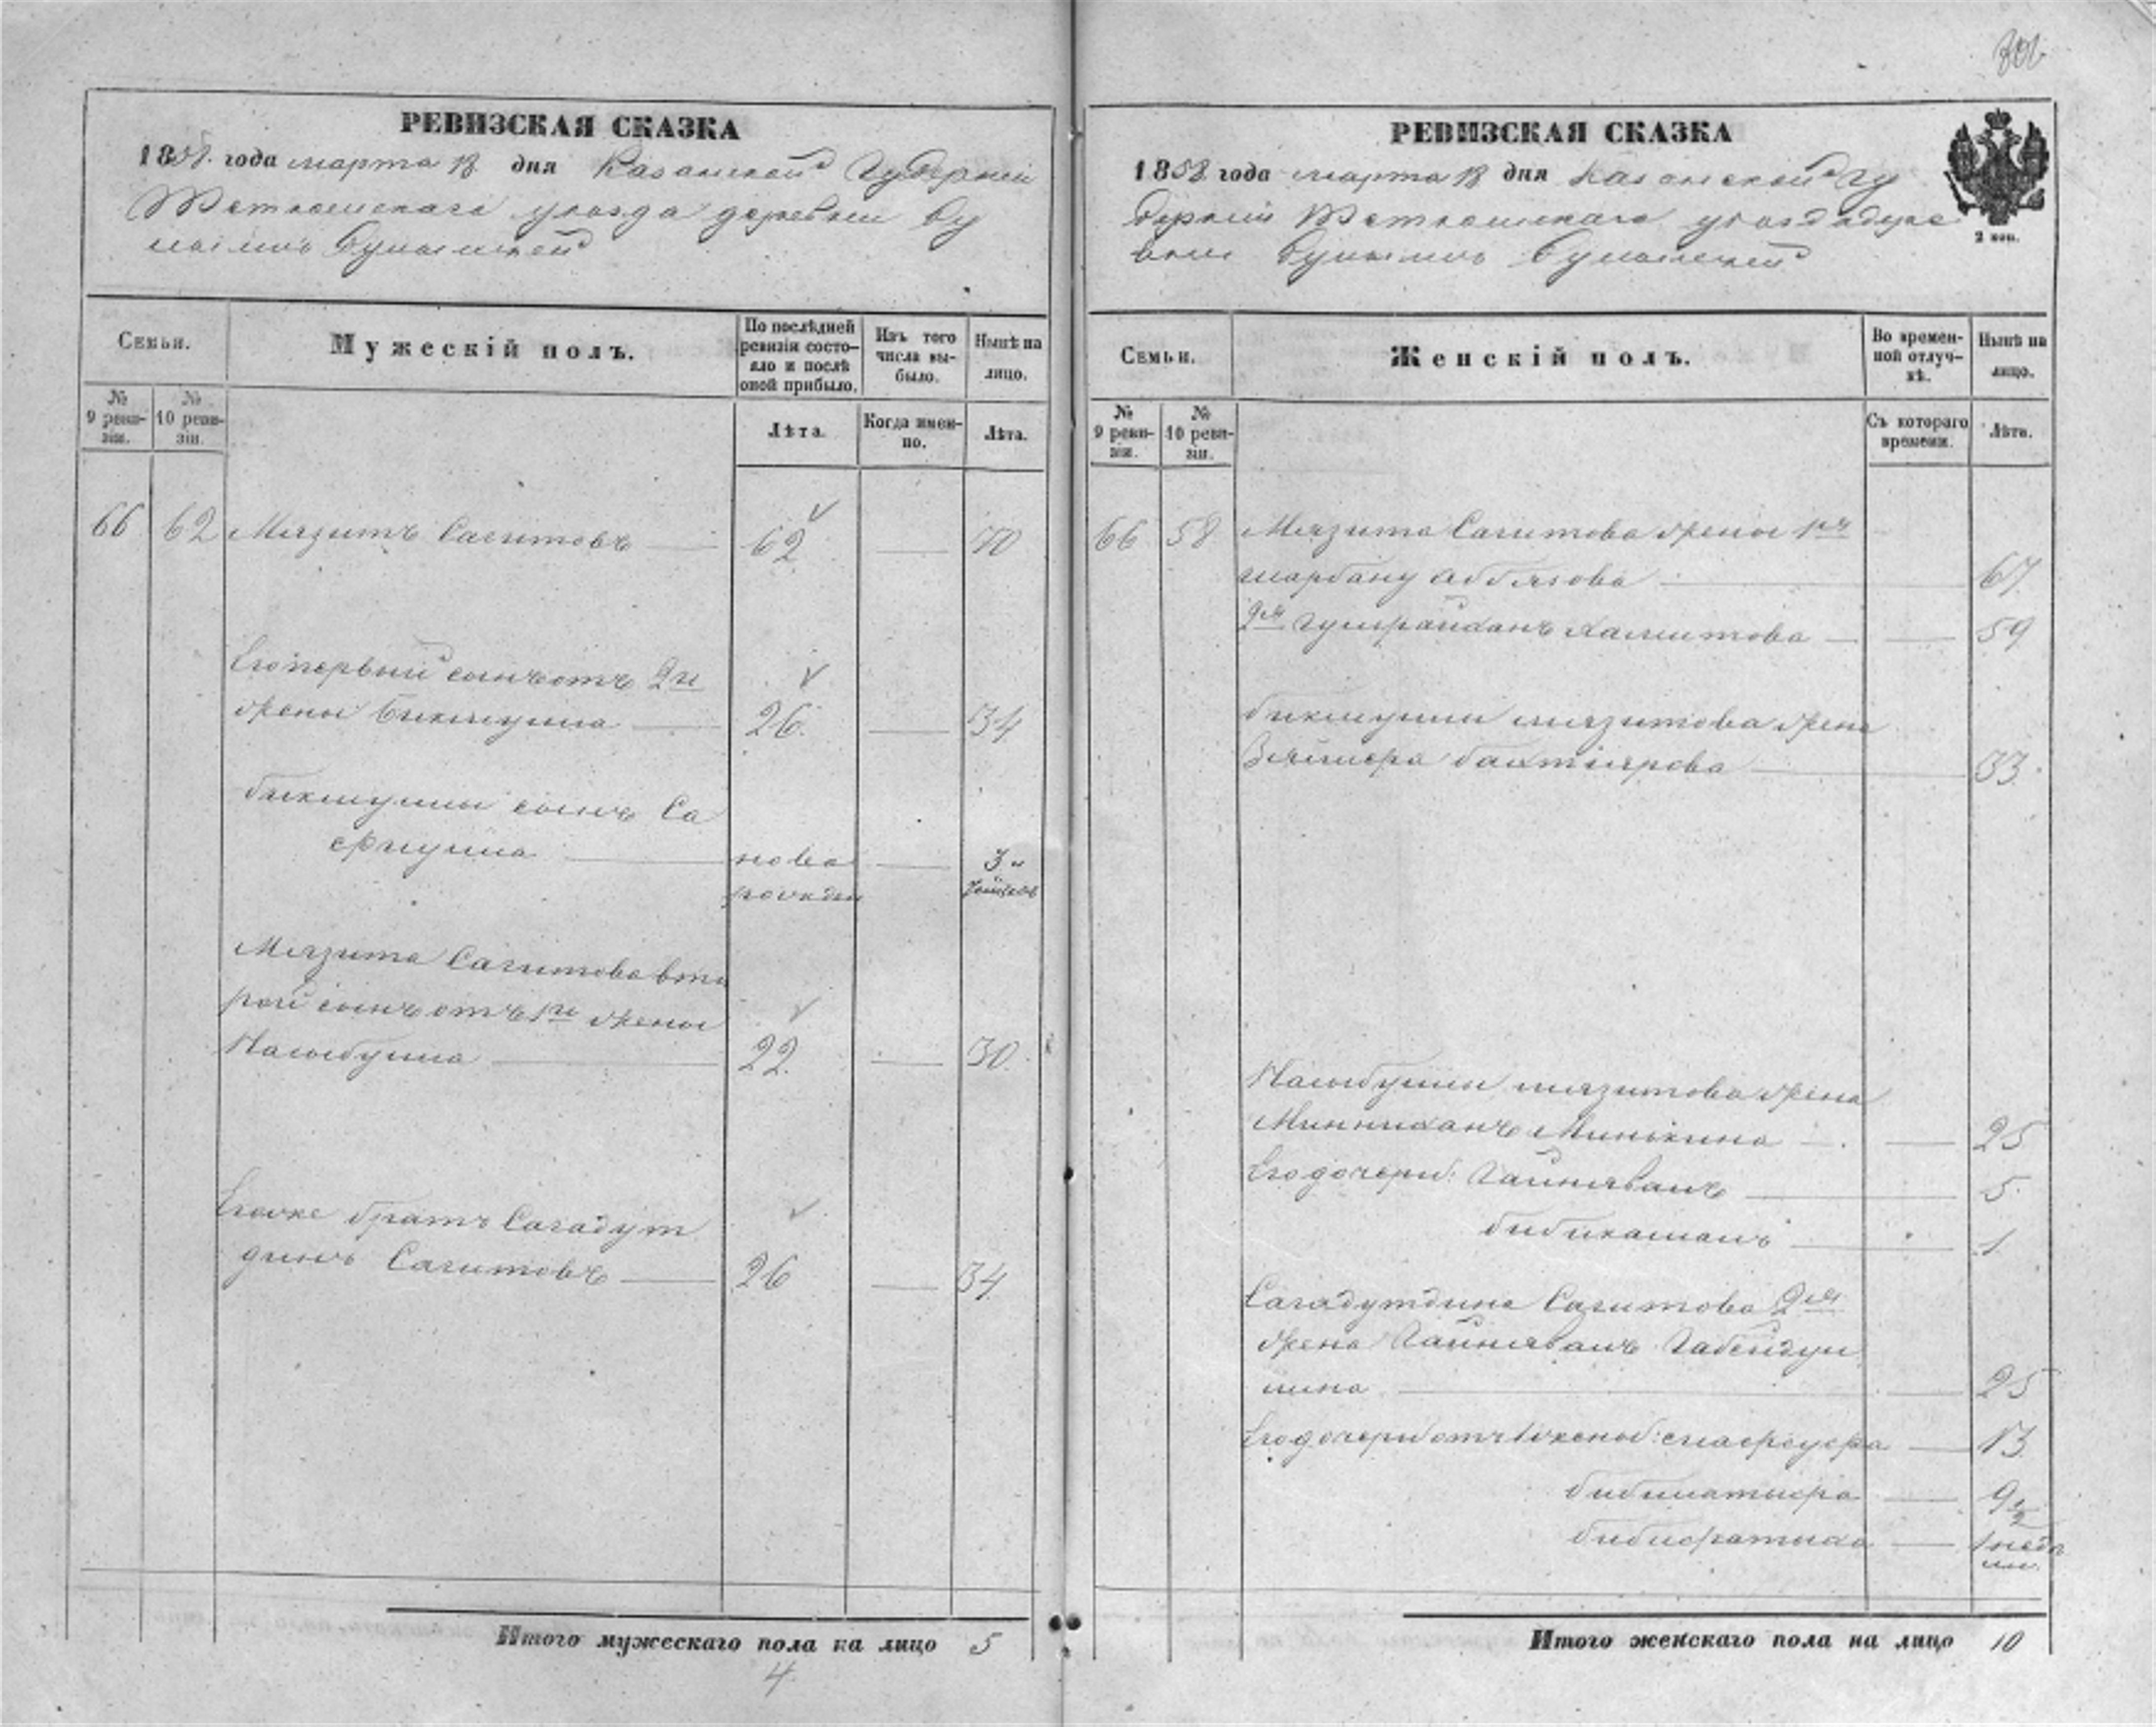 РЕВИЗСКАЯ СКАЗКА
1858. года марта 18 дня Казанской Губерніи
Тетюшскаго уѣзда деревни
Семьи.
Мужескій полъ.
По послѣдней ревизіи состояло и послѣ оной прибыло.
Изъ того числа выбыло.
Нынѣ на лицо.
№ 9 ревизіи.
№ 10 ревизіи.
Лѣта.
Когда именно.
Лѣта.
66 62 Мязитъ Сагитовъ 62 70
Его первый сынъ отъ 2й
жены Бикмулла 26. 34
Бикмуллы сынъ Са
фиулла ново 3
рожден
Мязита Сагитова вто
рой сынъ отъ 1й жены
Насыбулла 22. 30.
Его же братъ Сагадут
динъ Сагитовъ 26 34
Итого мужескаго пола на лицо 5
4.
РЕВИЗСКАЯ СКАЗКА
1858 года марта 18 дня Казанской Гу
берніи Тетюшскаго уѣзда дере
вни
2 коп.
Семьи.
Женскій полъ.
Во временной отлучкѣ.
Нынѣ на лицо.
№ 9 ревизіи.
№ 10 ревизіи.
Съ котораго времени.
Лѣта.
66 58 Мязита Сагитова жены 1я
Шарбану Аббясова 67.
2я Гульрайханъ Халитова 59
Бикмуллы Мязитова жена
Бахтіярова 33.
Насыбуллы Мязитова жена
Минниханъ 25
Его дочери: Гайниваль 5.
Бибикамаль 1
Сагадутдина Сагитова 2я
жена Гайниваль Габейдул
лина 25
Его дочери отъ 1 жены: 13
9 1/2
1 недѣ
ли.
Итого женскаго пола на лицо 10